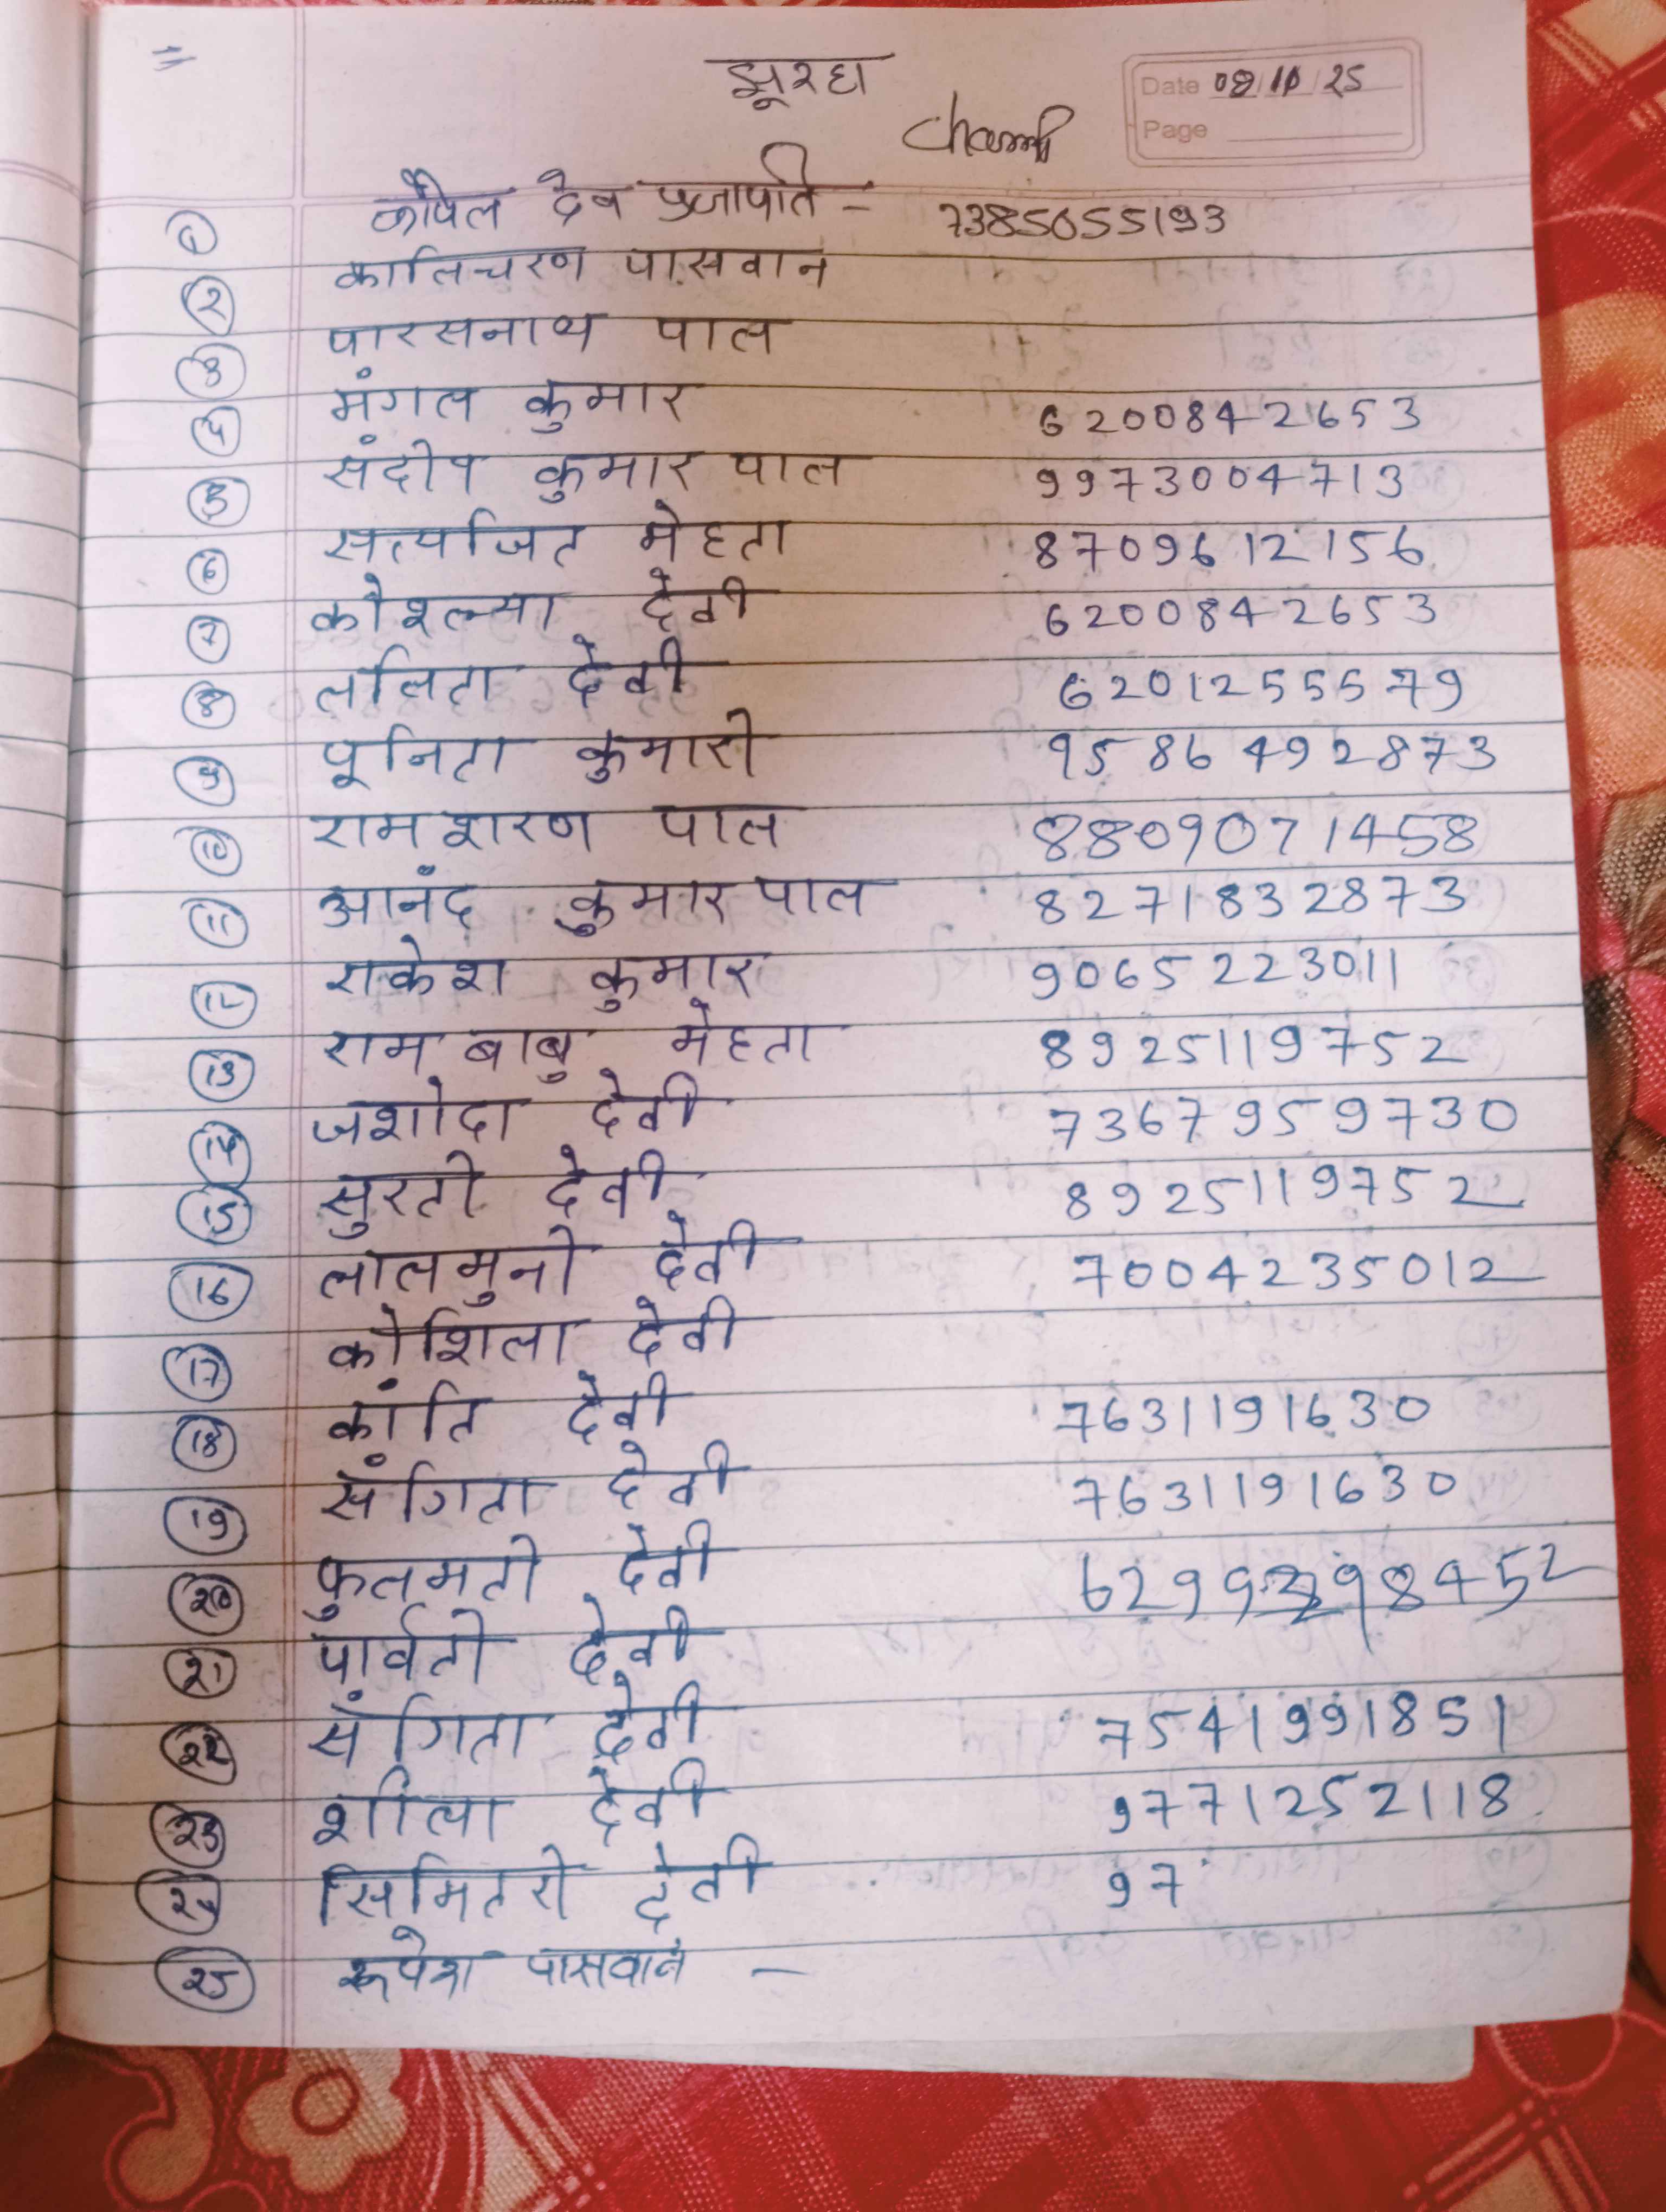 झूरहा
Date 08/10/25
Page
① कपिल देव प्रजापति - 7385055193
② कालिचरण पासवान
③ पारसनाथ पाल
④ मंगल कुमार 6200842653
⑤ संदीप कुमार पाल 9973004713
⑥ सत्यजित मेहता 8709612156
⑦ कौशल्या देवी 6200842653
⑧ ललिता देवी 6201255579
⑨ पूनिता कुमारी 9586492873
⑩ रामशरण पाल 8809071458
⑪ आनंद कुमार पाल 8271832873
⑫ राकेश कुमार 9065223011
⑬ राम बाबु मेहता 8925119752
⑭ जशोदा देवी 7367959730
⑮ सुरती देवी 8925119752
⑯ लालमुनी देवी 7004235012
⑰ कौशिला देवी
⑱ कांति देवी 7631191630
⑲ संगिता देवी 7631191630
⑳ फुलमती देवी
㉑ पार्वती देवी
㉒ संगिता देवी 7541991851
㉓ शीला देवी 9771252118
㉔ सिमितरी देवी 97
㉕ रूपेश पासवान -